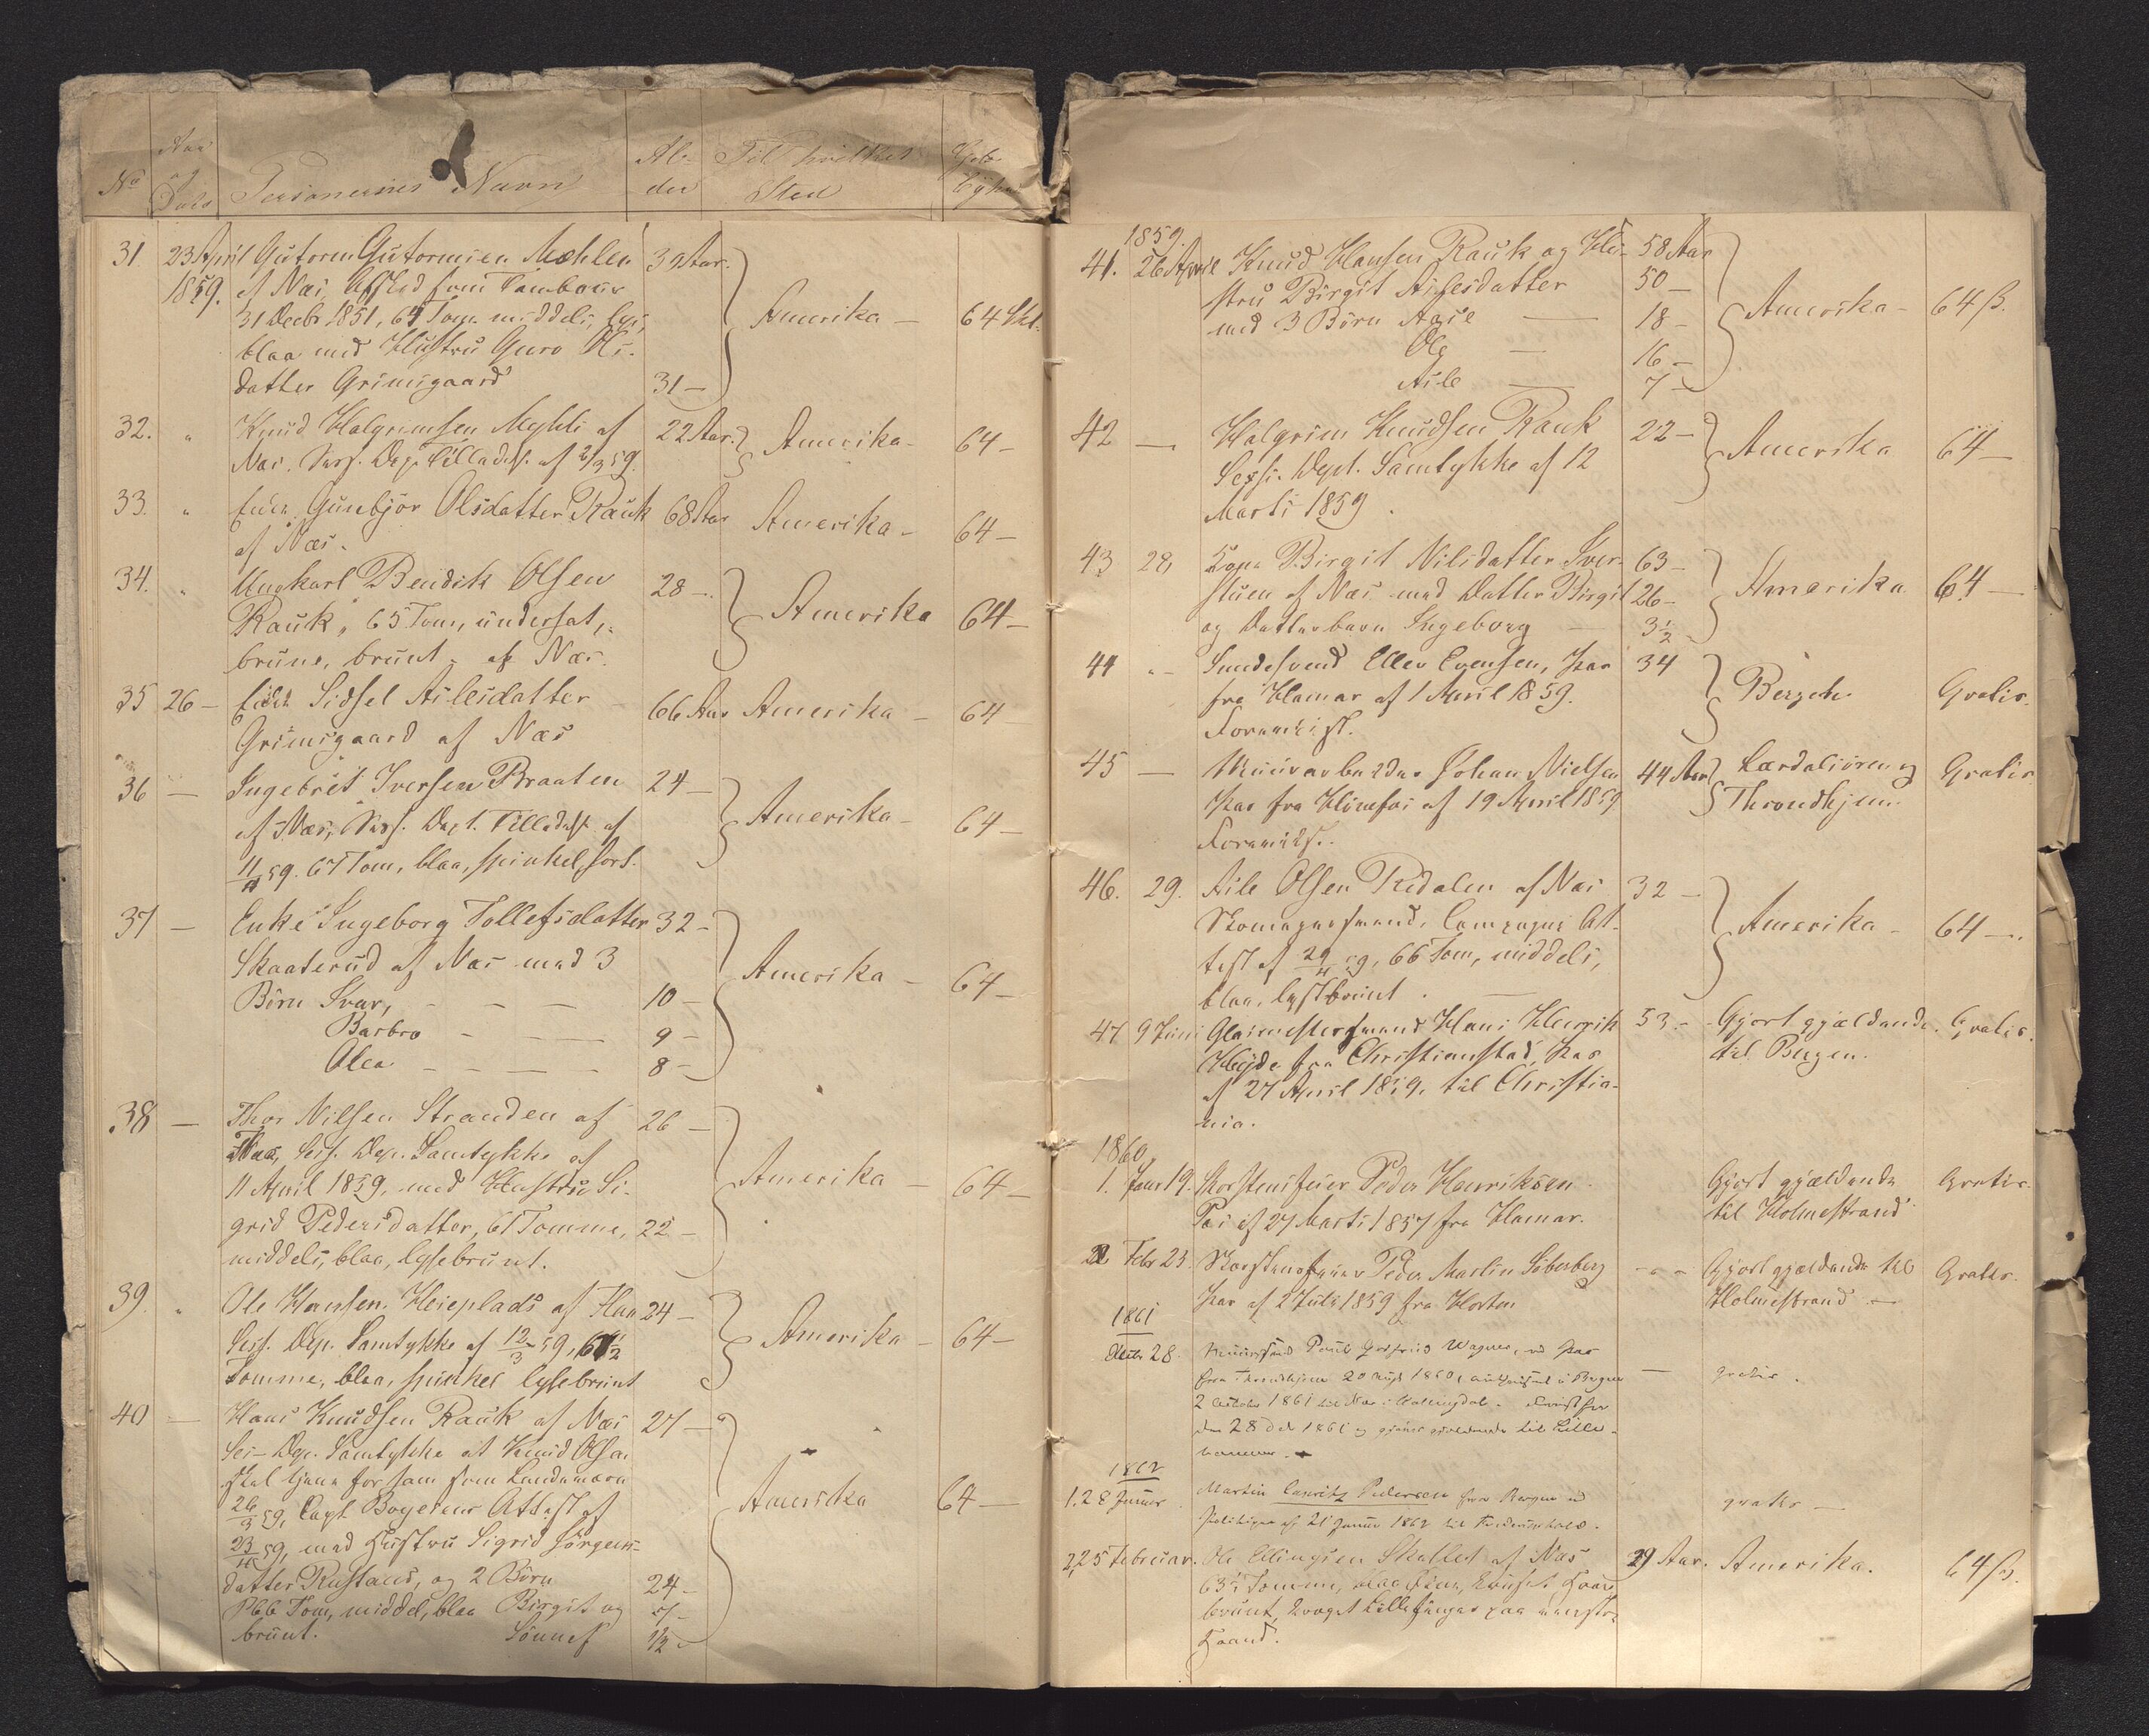 No | Aar og Dato | Personernes Navn | Alder | Til hvilket Sted | Gebyhr
31 23 April Gutorm Gutormsen Mæhlen 39 Aar.
1859. af Næs, Afsked som Tambour
31 Decbr 1851, 64 Tom. middels, lys,
blaa med Hustru Guro Ols- Amerika — 64 Skl.
datter Grimsgaard 31 —
32. " Knud Halgrimsen Myhli af 22 Aar. Amerika — 64 —
Næs. Sess. Dep. Tilladels. af 2/3 59.
33. " Enken Gunbjør Olsdatter Rauk 68 Aar Amerika — 64 —
af Næs.
34. " Ungkarl Bendik Olsen 28 —
Rauk, 65 Tom, undersat, Amerika 64 —
brune, brunt — af Næs.
35 26 — Enken Sidsel Asle​sdatter 66 Aar Amerika — 64 —
Grimsgaard af Næs
36 — Ingebret Iversen Braaten 24 —
af Næs, Sess. Dept. Tilladelse af Amerika — 64 —
11/4 59. 67 Tom, blaa, spinkel, sort.
37 — Enke Ingeborg Tollefsdatter 32 —
Skaaterud af Næs med 3 Amerika — 64 —
Børn Ivar, — — — 10 —
Barbro — — — 9 —
Olea — — — — 8 —
38 — Thor Nilsen Stranden af 26 —
Næs, Sess. Dep. Samtykke af
11 April 1859, med Hustru Si- Amerika — 64 —
grid Pedersdatter, 61 Tomme, 22 —
middels, blaa, lysebrunt.
39. " Ole Hansen Heieplads af Flaa 24 —
Sess. Dep. Samtykke af 12/3 59, 61 1/2 Amerika — 64 —
Tomme, blaa, spinkel lysebrunt
40 — Hans Knudsen Rauk af Næs 27 —
Ses— Dep. Samtykke at Knud Olsen
skal tjene for ham som Landeværn
26/3 59, Capt Boyesens Attest af Amerika 64 —
23/4 59, med Hustru Sigrid Jørgens-
datter Rustand, og 2 Børn 24 —
P 66 Tom, middel, blaa Birgit og
brunt. Sønnef 1/2 —
1859.
41. 26 April Knud Hansen Rauk og Hu- 58 Aar
stru Birgit Aslesdatter 50 —
med 3 Børn Aase — 18 — Amerika — 64 ß.
Ole — 16 —
Asle — 7 —
42 — Halgrim Knudsen Rauk 22 — Amerika 64 —
Sess. Dept. Samtykke af 12
Marts 1859.
43 28, Birgit Nilsdatter Iver- 63 —
stuen af Næs med Datter Birgit 26 — Amerika 64 —
og Datterbarn Ingeborg — 3 1/2
44 " Smedesvend Ellev Evensen, Pas 34
fra Hamar af 1 April 1859. Bergen Gratis.
Forevist.
45 — Murarbeider Johan Nielsen 44 Aar Lærdalsøren og Gratis
Pas fra Hønefos af 19 April 1859 Throndhjem.
Forevist.
46. 29. Asle Olsen Trædalen af Næs 32 —
Skomagersvend, Compagni At-
test af 29/4 59, 66 Tom, middels, Amerika — 64 —.
blaa, lysbrunt.
47 9 Juni Glasmestersvend Hans Henrik 53 — Gjort gjældende Gratis.
Heyde fra Christianstad, Pas til Bergen.
af 27 April 1859, til Christia-
nia.
1860,
1. Januar 19. Skorstensfeier Peder Henriksen Gjort gjældende Gratis.
Pas af 27 Marts 1857 fra Hamar. til Holmestrand
2 Febr 23. Skorstensfeier Peder Martin Söberberg — " — Gjort gjældende til Gratis.
Pas af 2 Juli 1859 fra Horten Holmestrand —
1861
Decbr 28. Muursvend Paul Gotfried Wagner, ved Pas
fra Throndhjem 20 August 1860, autoriseret i Bergen — gratis.
2 October 1861 til Næs i Hallingdal. Forevist her
den 28 Decb 1861 og gjøres gjældende til Lille-
hammer.
1862
1. 28 Januar. Martin Lauritz Pedersen fra Bergen ved gratis —
af 21 Januar 1862 til Frederikshald.
2, 25 Februar. Ole Ellingsen Skallet af Næs 29 Aar. Amerika. 64 ß.
63 1/2 Tomme, blaa Øine, Haar
brunt, kroget Lillefinger paa venstre
Haand.